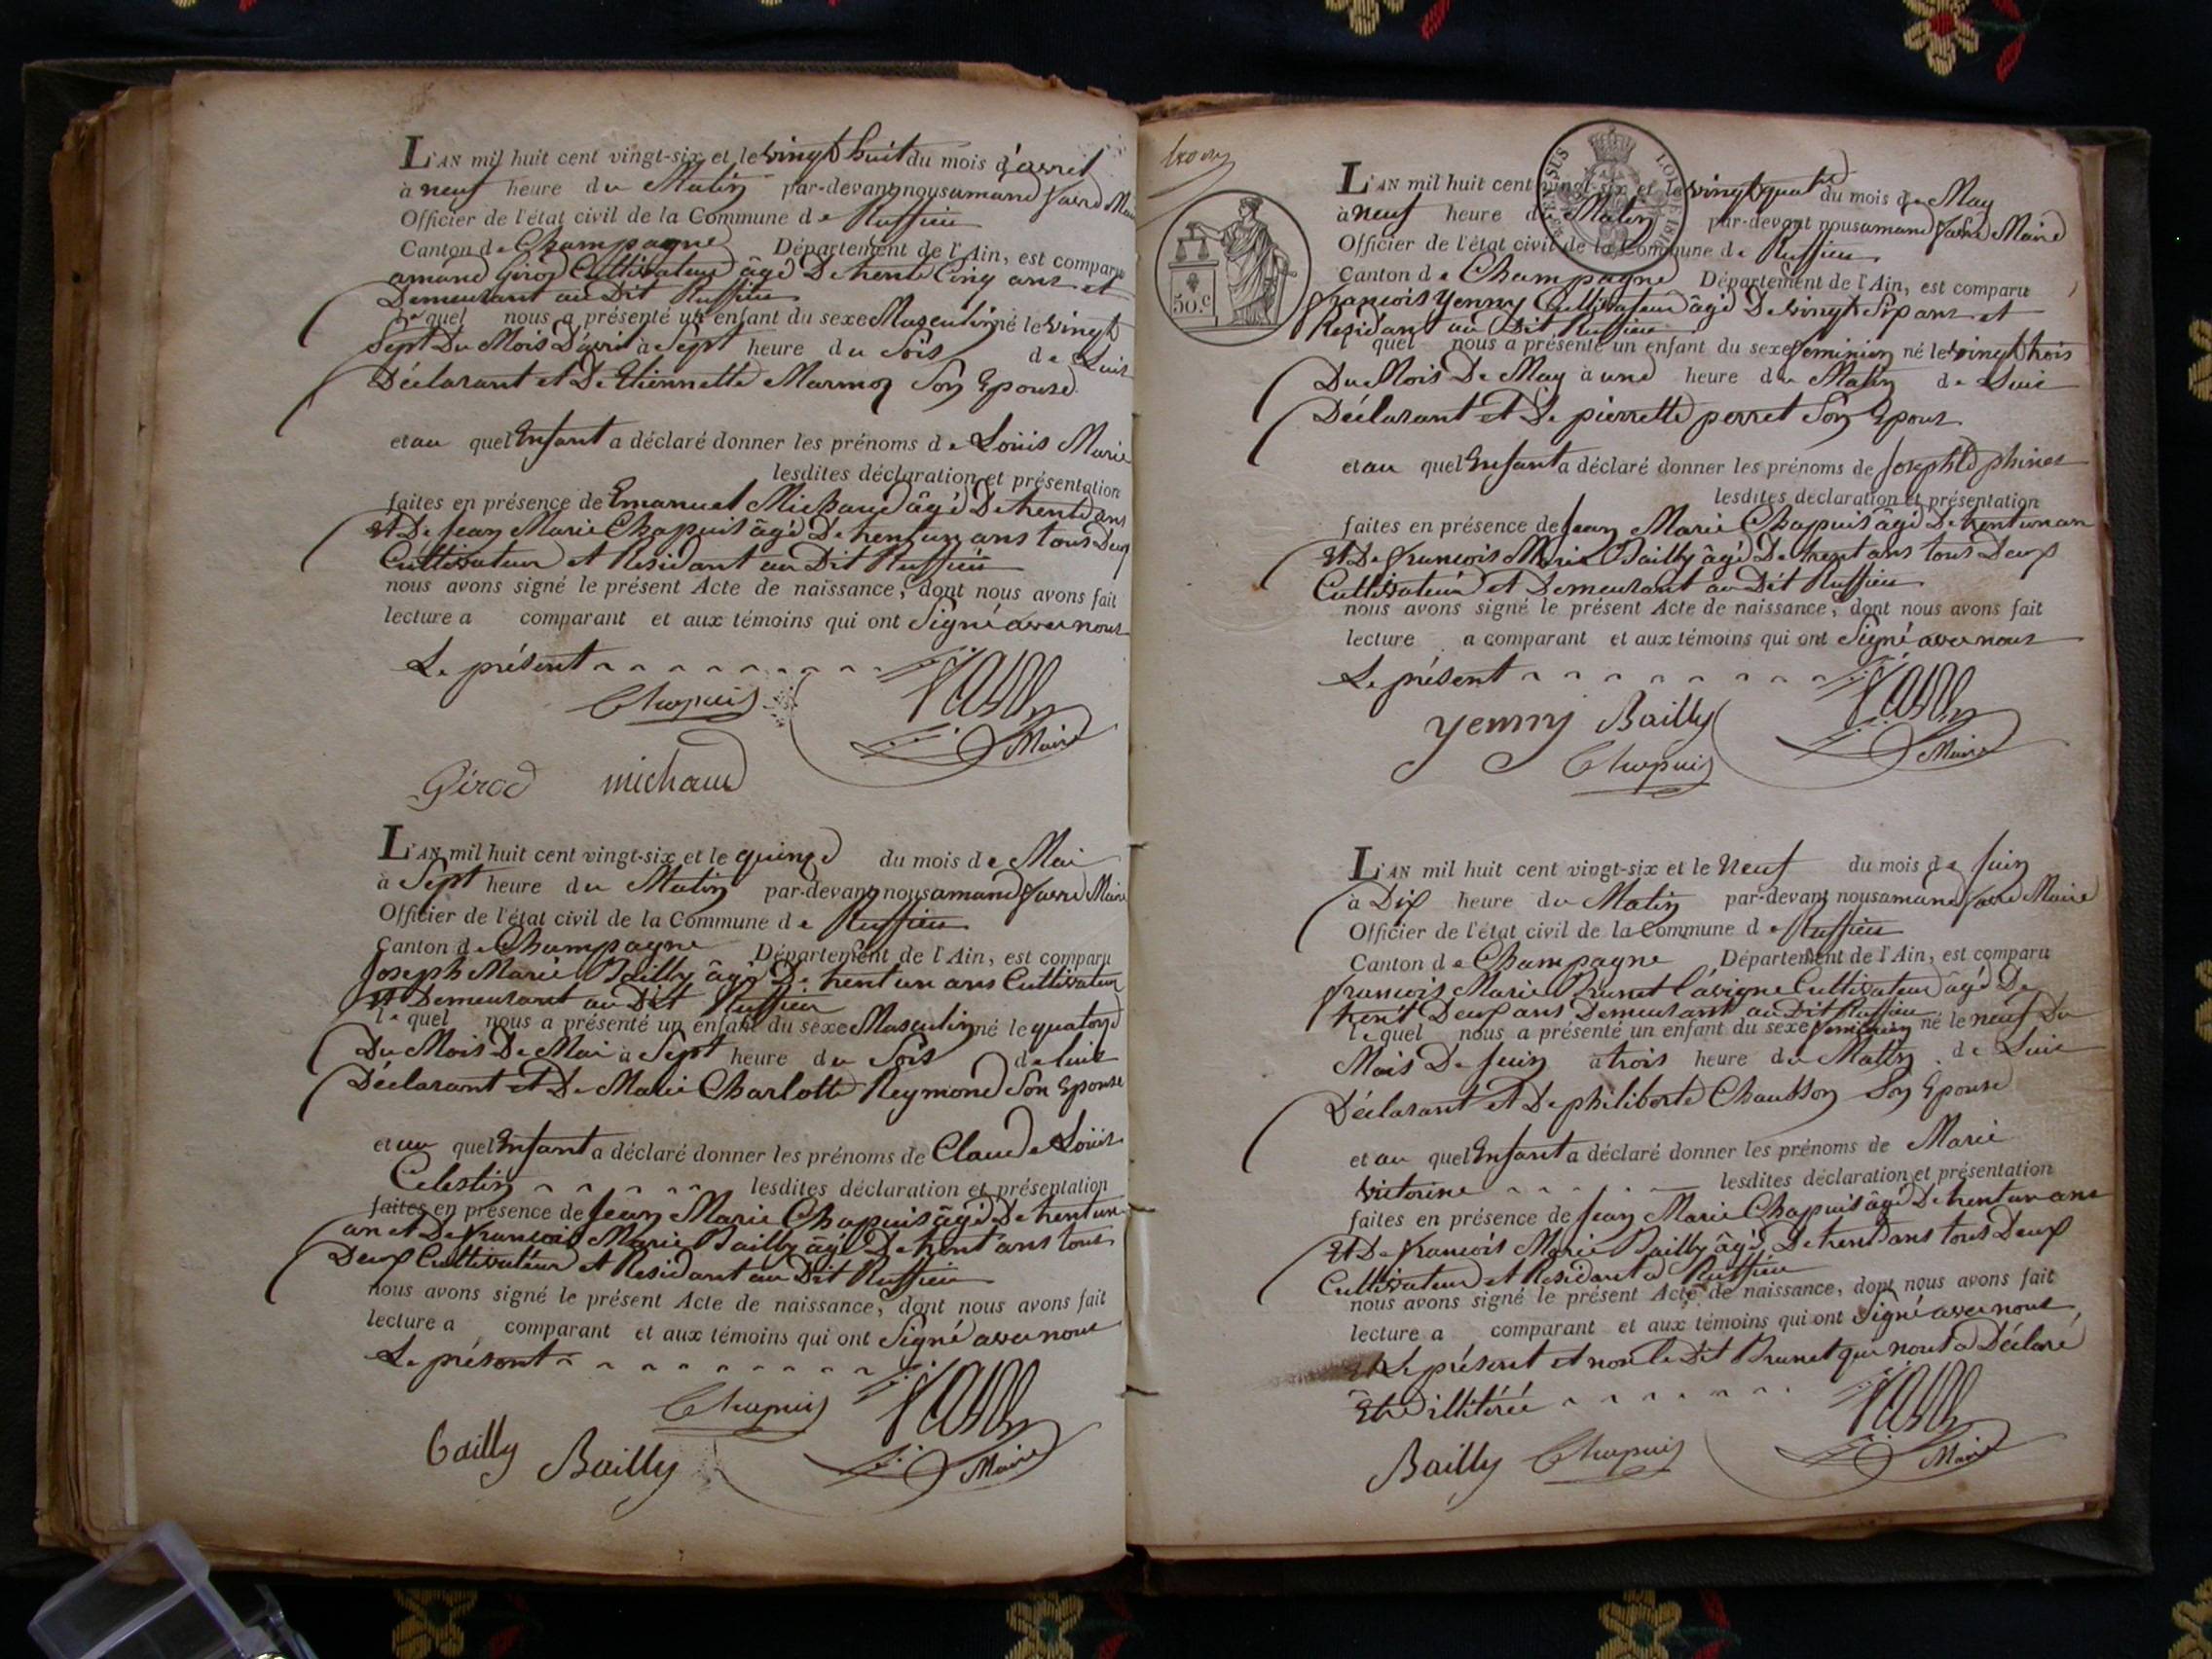 L'AN mil huit cent vingt-six et le vingt huit du mois d'avril
à neuf heure du Matin par-devant nous amand favre Maire
Officier de l'état civil de la Commune de Ruffieu
Canton de Champagne Département de l'Ain, est comparu
amand Girod Cultivateur âgé De trente Cinq ans et
Demeurant au Dit Ruffieu
le quel nous a présenté un enfant du sexe Masculin né le vingt
Sept Du Mois D'avril à Sept heure du Soir de Luis
Déclarant et De Etiennette Marmoz Son Epouse
et au quel Enfant a déclaré donner les prénoms de Louis Marie
lesdites déclaration et présentation
faites en présence de Emanuel Michaud âgé De trente ans
Et De Jean Marie Chapuis âgé De trent un ans tous Deux
Cultivateur et Residant au Dit Ruffieu
nous avons signé le présent Acte de naissance, dont nous avons fait
lecture a comparant et aux témoins qui ont Signé avec nous
Le présent
Chapuis
Maire
Girod michaud
L'AN mil huit cent vingt-six et le quinze du mois de Mai
à Sept heure du Matin par-devant nous amand favre Maire
Officier de l'état civil de la Commune de Ruffieu
Canton de Champagne Département de l'Ain, est comparu
Joseph Marie Bailly âgé De trent un ans Cultivateur
Et Demeurant au Dit Ruffieu
le quel nous a présenté un enfant du sexe Masculin né le quatorze
Du Mois De Mai à Sept heure du Soir de luis
Déclarant et De Marie Charlotte Reymond Son Epouse
et au quel Enfant a déclaré donner les prénoms de Claude Louis
Celestin lesdites déclaration et présentation
faites en présence de Jean Marie Chapuis âgé De trent un
an et De francois Marie Bailly âgé De trent ans tous
Deux Cultivateur et Residant au Dit Ruffieu
nous avons signé le présent Acte de naissance, dont nous avons fait
lecture a comparant et aux témoins qui ont Signé avec nous
Le présent
Chapuis
Bailly Bailly Maire
50.c
L'AN mil huit cent vingt-six et le vingt quatre du mois de May
à neuf heure du Matin par-devant nous amand favre Maire
Officier de l'état civil de la Commune de Ruffieu
Canton de Champagne Département de l'Ain, est comparu
francois Yenny Cultivateur âgé De vingt Six ans et
Residant au Dit Ruffieu
quel nous a présenté un enfant du sexe feminien né le vingt trois
Du Mois De May à une heure du Matin de Luis
Déclarant et De pierrette perret Son Epous
et au quel Enfant a déclaré donner les prénoms de Josephte phines
lesdites déclaration et présentation
faites en présence de Jean Marie Chapuis âgé De trent un an
Et De francois Marie Bailly âgé De trent ans tous Deux
Cultivateur et Demeurant au Dit Ruffieu
nous avons signé le présent Acte de naissance, dont nous avons fait
lecture a comparant et aux témoins qui ont Signé avec nous
Le présent
yenny Bailly
Chapuis Maire
L'AN mil huit cent vingt-six et le neuf du mois de Juin
à Dix heure du Matin par-devant nous amand favre Maire
Officier de l'état civil de la Commune de Ruffieu
Canton de Champagne Département de l'Ain, est comparu
francois Marie Brunet Lavigne Cultivateur âgé De
trent Deux ans Demeurant au Dit Ruffieu
le quel nous a présenté un enfant du sexe feminien né le neuf Du
Mois De Juin à trois heure du Matin de Luis
Déclarant et De philiberte Chausson Son Epouse
et au quel Enfant a déclaré donner les prénoms de Marie
victorine lesdites déclaration et présentation
faites en présence de Jean Marie Chapuis âgé De trent un ans
Et De francois Marie Bailly âgé De trent ans tous Deux
Cultivateur et Residant a Ruffieu
nous avons signé le présent Acte de naissance, dont nous avons fait
lecture a comparant et aux témoins qui ont Signé avec nous
Le présent et non le Dit Brunet qui nous a Déclaré
Etre illitérée
Bailly Chapuis Maire